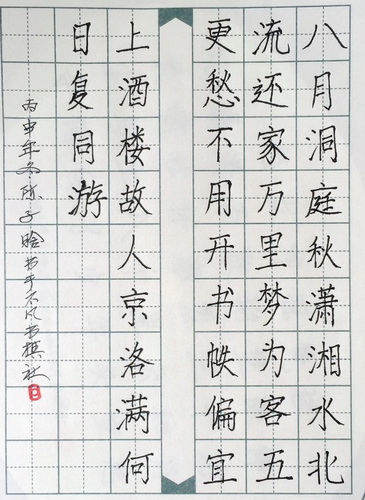 八月洞庭秋潇湘水北
流还家万里梦为客五
更愁不用开书帙偏宜
上酒楼故人京洛满何
日复同游
丙申年冬陈子书于不凡书棋社